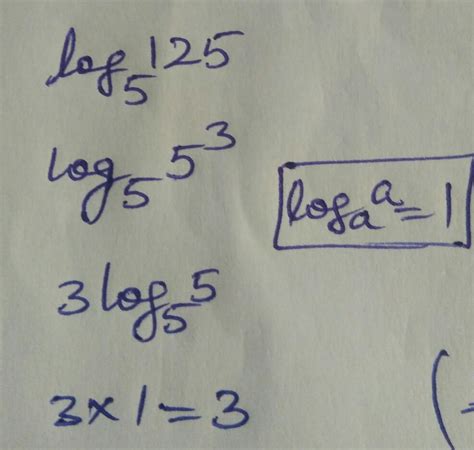 log₅125
log₅5³
logₐa = 1
3log₅5
3×1=3
(=